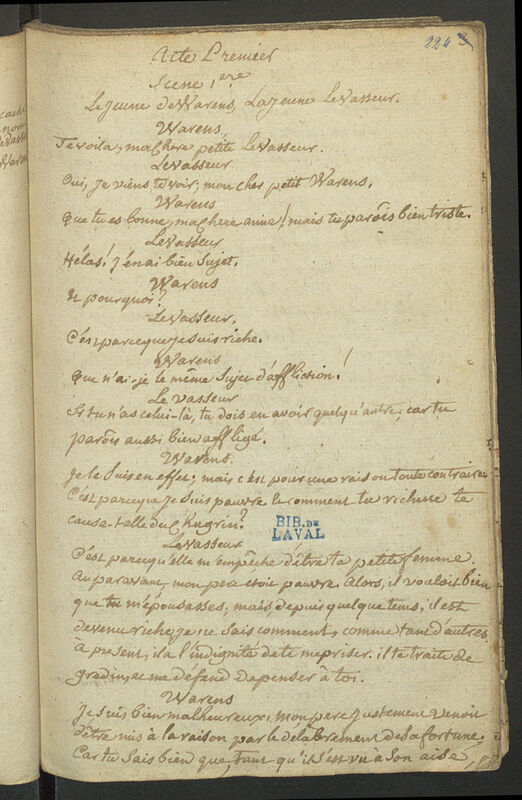 224
Acte Premier
Scene 1ere
Le jeune de Warens, La jeune Levasseur.
Warens
Te voila, ma chere petite Levasseur.
Levasseur
Oui, je viens te voir, mon cher petit Warens.
Warens
Que tu es bonne, ma chere amie! mais tu parois bien triste.
Levasseur
Hélas! j'en ai bien sujet.
Warens
Et pourquoi?
Levasseur.
C'est parceque je suis riche.
Warens
Que n'ai-je le même sujet d'affliction!
Levasseur
Si tu n'as celui-là, tu dois en avoir quelqu'autre, car tu
parois aussi bien affligé.
Warens.
Je le suis en effet; mais c'est pour une raison toute contraire
C'est parceque je suis pauvre. Et comment ta richesse te
cause-t-elle du chagrin?
BIB. DE
LAVAL
Levasseur
C'est parcequ'elle m'empêche d'être ta petite femme.
Auparavant, mon pere etoit pauvre. Alors, il vouloit bien
que tu m'épousasses; mais, depuis quelque tems, il est
devenu riche, je ne sais comment, comme tant d'autres.
à present, il a l'indignité de te mepriser. il te traite de
gredin, et me defend de penser à toi.
Warens
Je suis bien malheureux. mon pere justement venoit
d'être mis à la raison par le délabrement de sa fortune.
Car tu sais bien que, tant qu'il s'est vu à son aise,